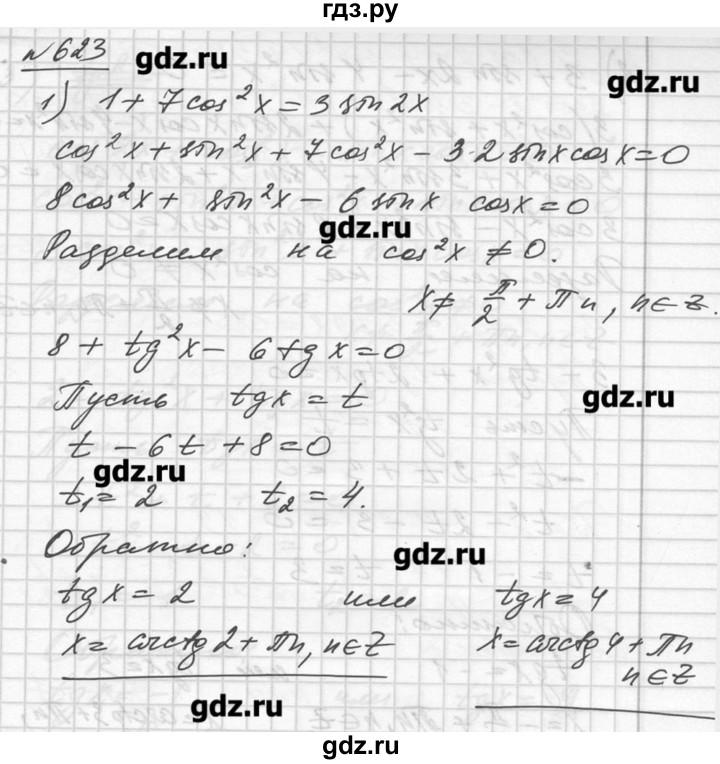 гдз.ру
№623
gdz.ru
gdz.ru
1) 1 + 7cos²x = 3 sin 2x
cos²x + sin²x + 7cos²x - 3·2 sinx cosx = 0
8cos²x + sin²x - 6 sinx cosx = 0
gdz.ru
Разделим на cos²x ≠ 0.
x ≠ π/2 + πn, n∈Z.
8 + tg²x - 6tgx = 0
Пусть tgx = t
gdz.ru
t - 6t + 8 = 0
gdz.ru
t₁ = 2 t₂ = 4.
Обратно:
gdz.ru
tgx = 2 или tgx = 4
x = arctg2 + πn, n∈Z x = arctg4 + πn
n∈Z
gdz.ru
gdz.ru